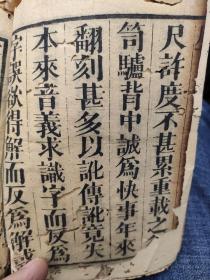 尺許度不甚累重載之入
笥驢背中誠為快事年來
翻刻甚多以訛傳訛竟失
本來音義求識字而反為
誤欲得解而反為解